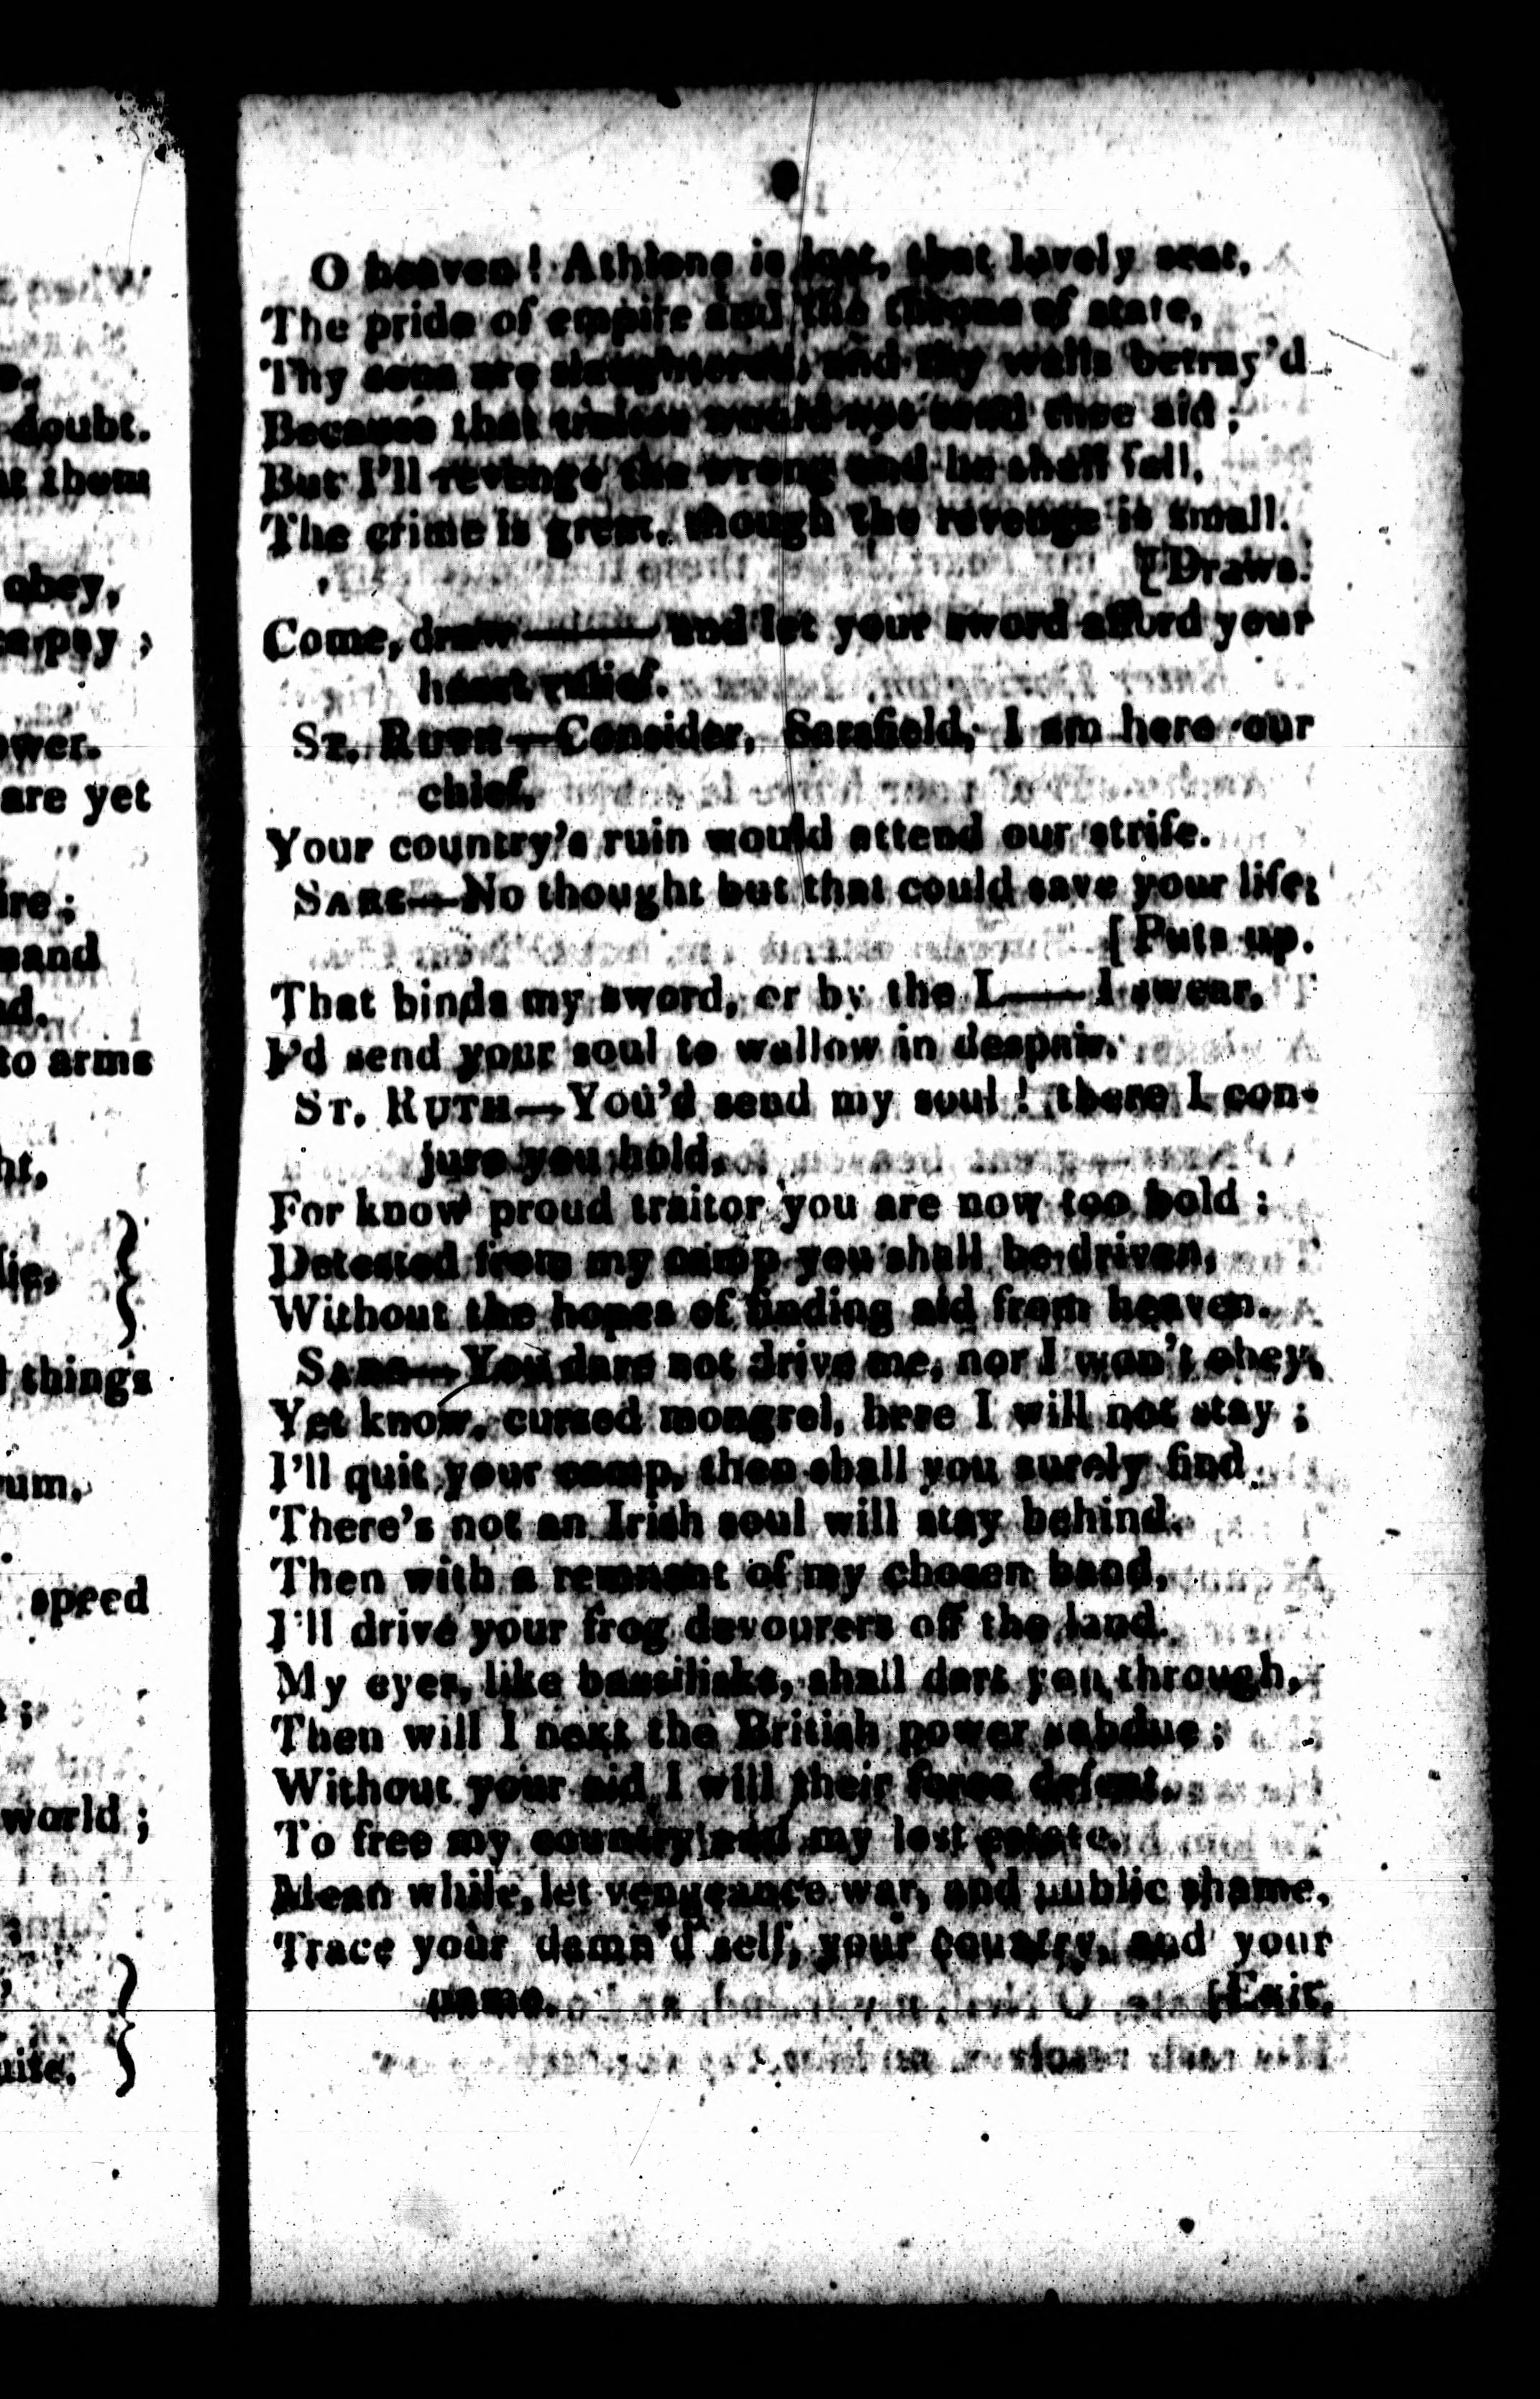 doubt.
them
obey,
pay ;
are yet
to arms
things
speed
world ;
O heaven! Athlone is lost, that lovely seat,
The pride of empire and the throne of state,
Thy sons are slaughtered, and thy walls betray'd
Because that traitor would not send thee aid ;
But I'll revenge the wrong and he shall fall,
The crime is great, though the revenge is small.
[Draws.
Come, draw—— and let your sword afford your
heart relief.
St. Ruth—Consider, Sarsfield, I am here our
chief,
Your country's ruin would attend our strife.
Sars—No thought but that could save your life;
[Puts up.
That binds my sword, or by the L—— I swear,
I'd send your soul to wallow in despair.
St. Ruth—You'd send my soul ! there I con-
jure you hold,
For know proud traitor you are now too bold :
Detested from my camp you shall be driven,
Without the hopes of finding aid from heaven.
Sars—You dare not drive me, nor I won't obey,
Yet know, cursed mongrel, here I will not stay ;
I'll quit your camp, then shall you surely find
There's not an Irish soul will stay behind.
Then with a remnant of my chosen band,
I'll drive your frog devourers off the land.
My eyes, like bassilisks, shall dart you through,
Then will I next the British power subdue ;
Without your aid I will their force defeat,
To free my country and my lost estate.
Mean while, let vengeance war, and public shame,
Trace your damn'd self, your country, and your
name. [Exit.